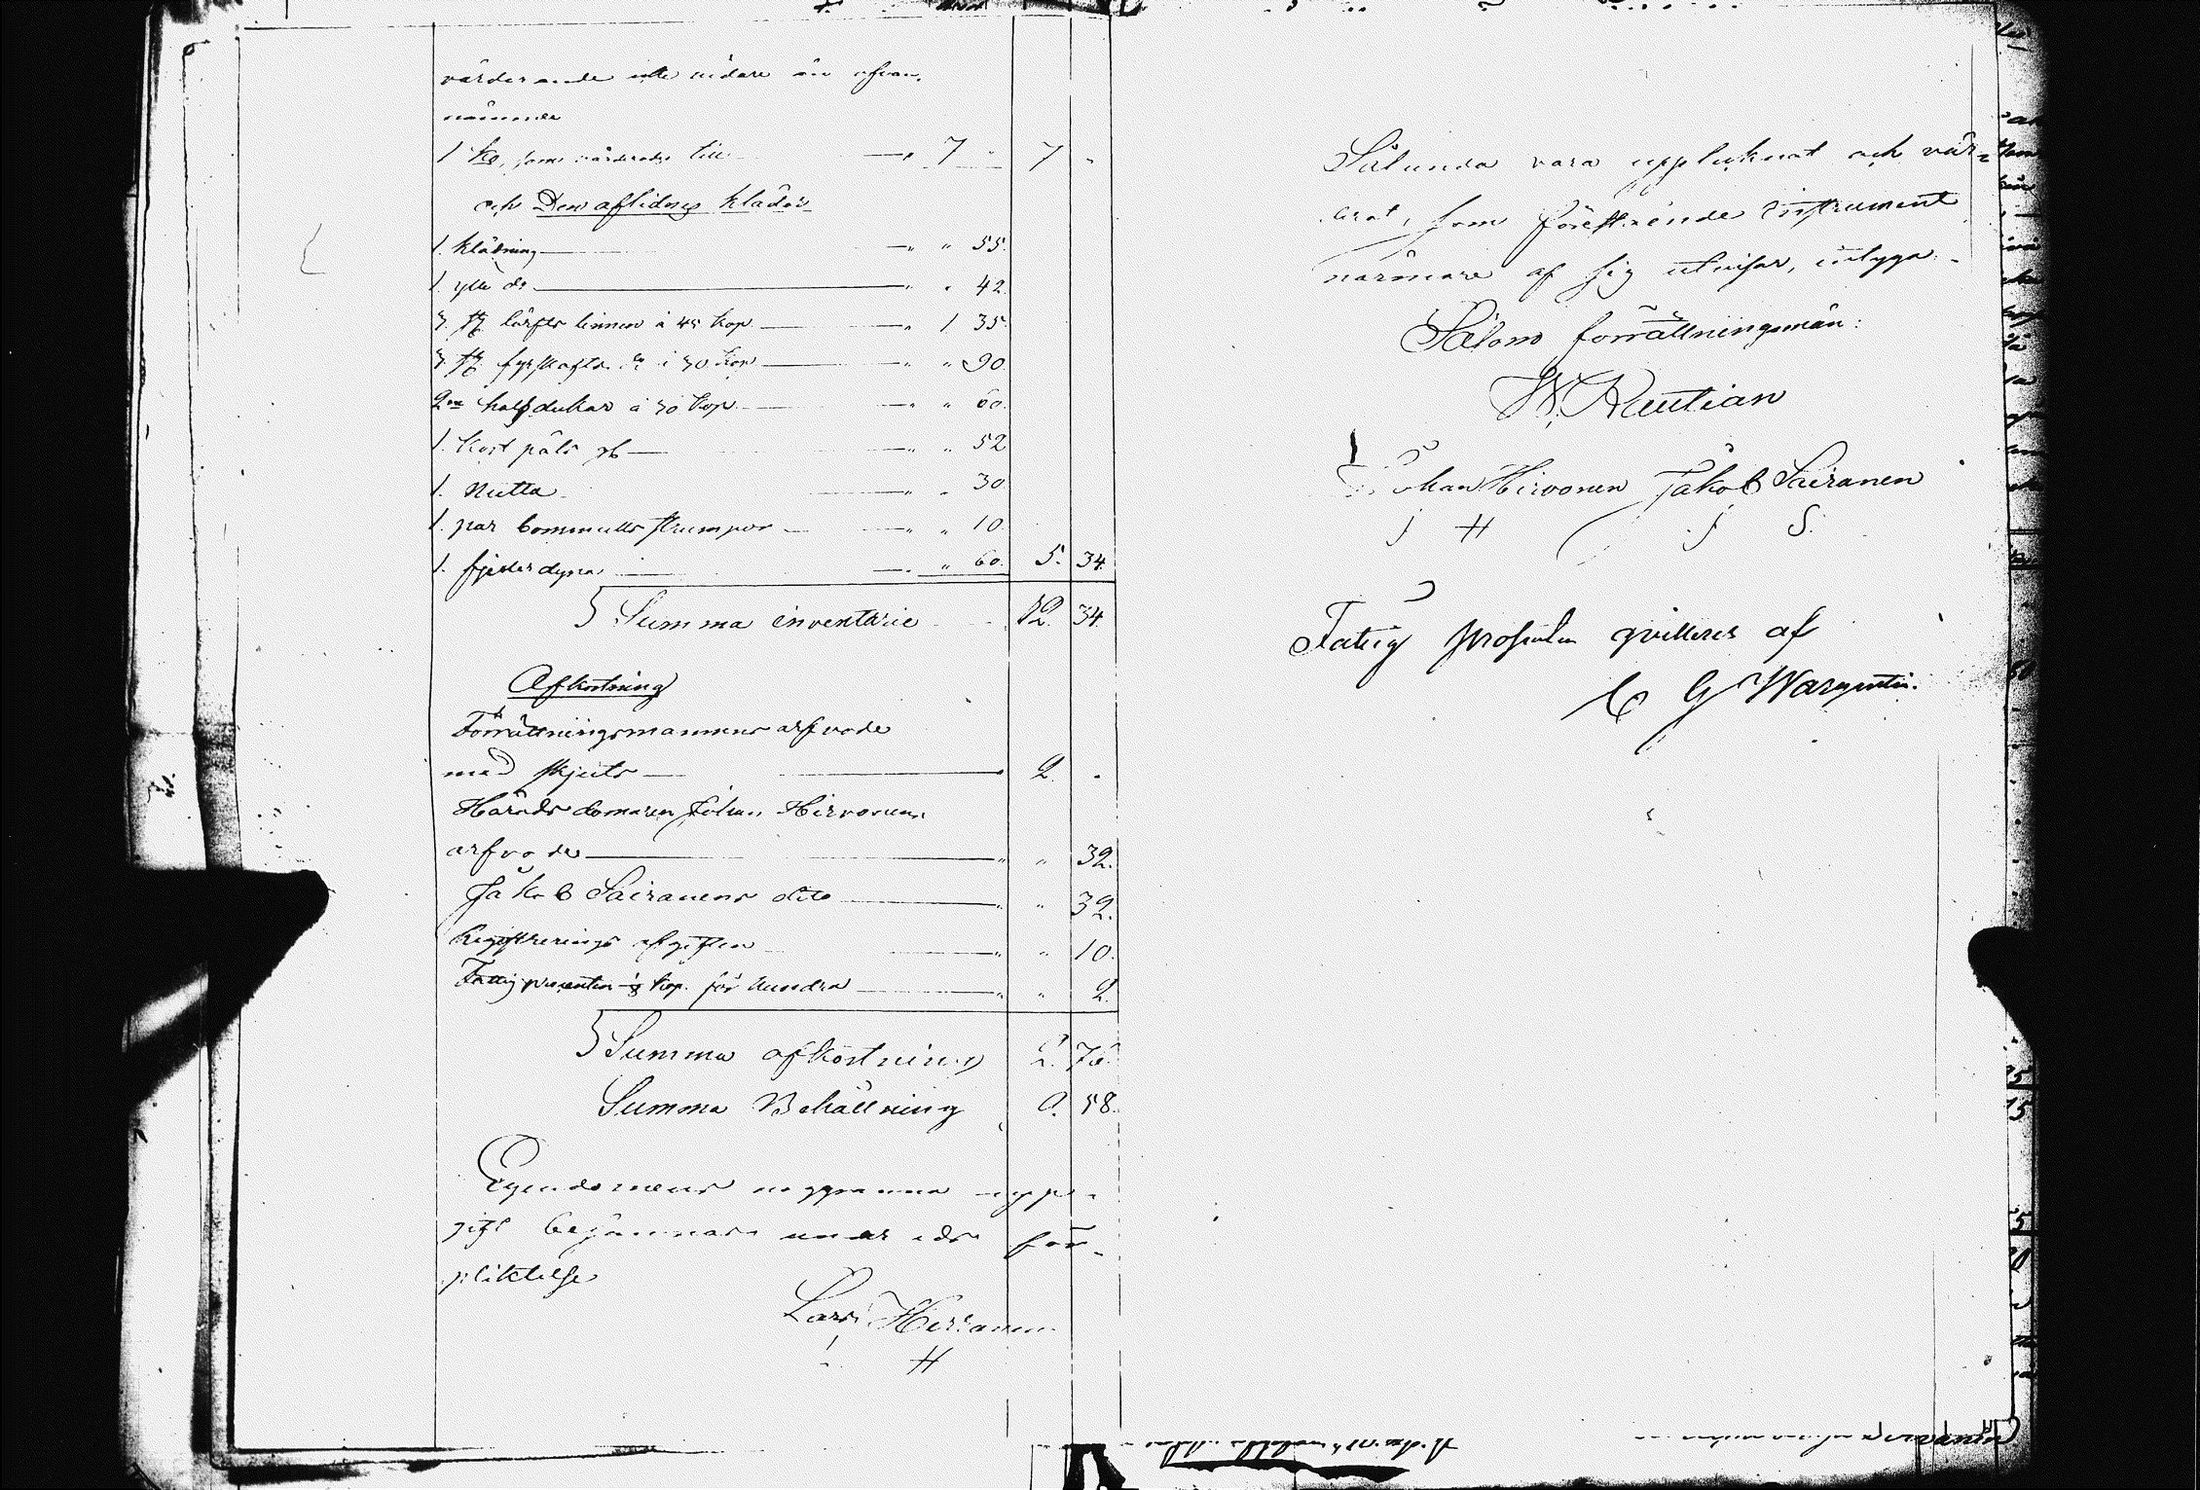 värderande icke vidare än ofvan
nämnde
1 Ko, som värderades till — " 7 " 7 "
och Den aflidnes kläder
1. klädning — " " 55.
1. ylle do — " " 42.
3. st lärfts linnen à 45 kop — " 1 35.
3. st fyrskafts do à 30 kop — " " 90.
2ne halsdukar à 30 kop — " " 60.
1. kort päls — " " 52
1. Nutta — " " 30
1. par bommulls strumpor — " " 10.
1. fjederdyna — " " 60. 5. 34.
Summa inventarie 12. 34.
Afkortning
Förrättningsmannens arfvode
med skjuts — 2. "
Härads domaren Johan Hirvonens
arfvode — " " 32.
Jakob Sairanens dito — " " 32.
Registrerings afgiften — " " 10.
Fattig procenten kop. för hundra — " " 2.
Summa afkortning 2. 76.
Summa Behållning 9. 58.
Egendomens noggranna upp-
gift bejämnas under eds för-
pliktelse
Lars
H
Sålunda vara uppteknat och vär-
derat, som föreståénde instrument
närmare af sig utvisar, intyga
Sålom förrättningsmän:
Johan Hirvonen Jakob Sairanen
J H J S.
Fattig procenten qvitteras af
C G Wargentin.